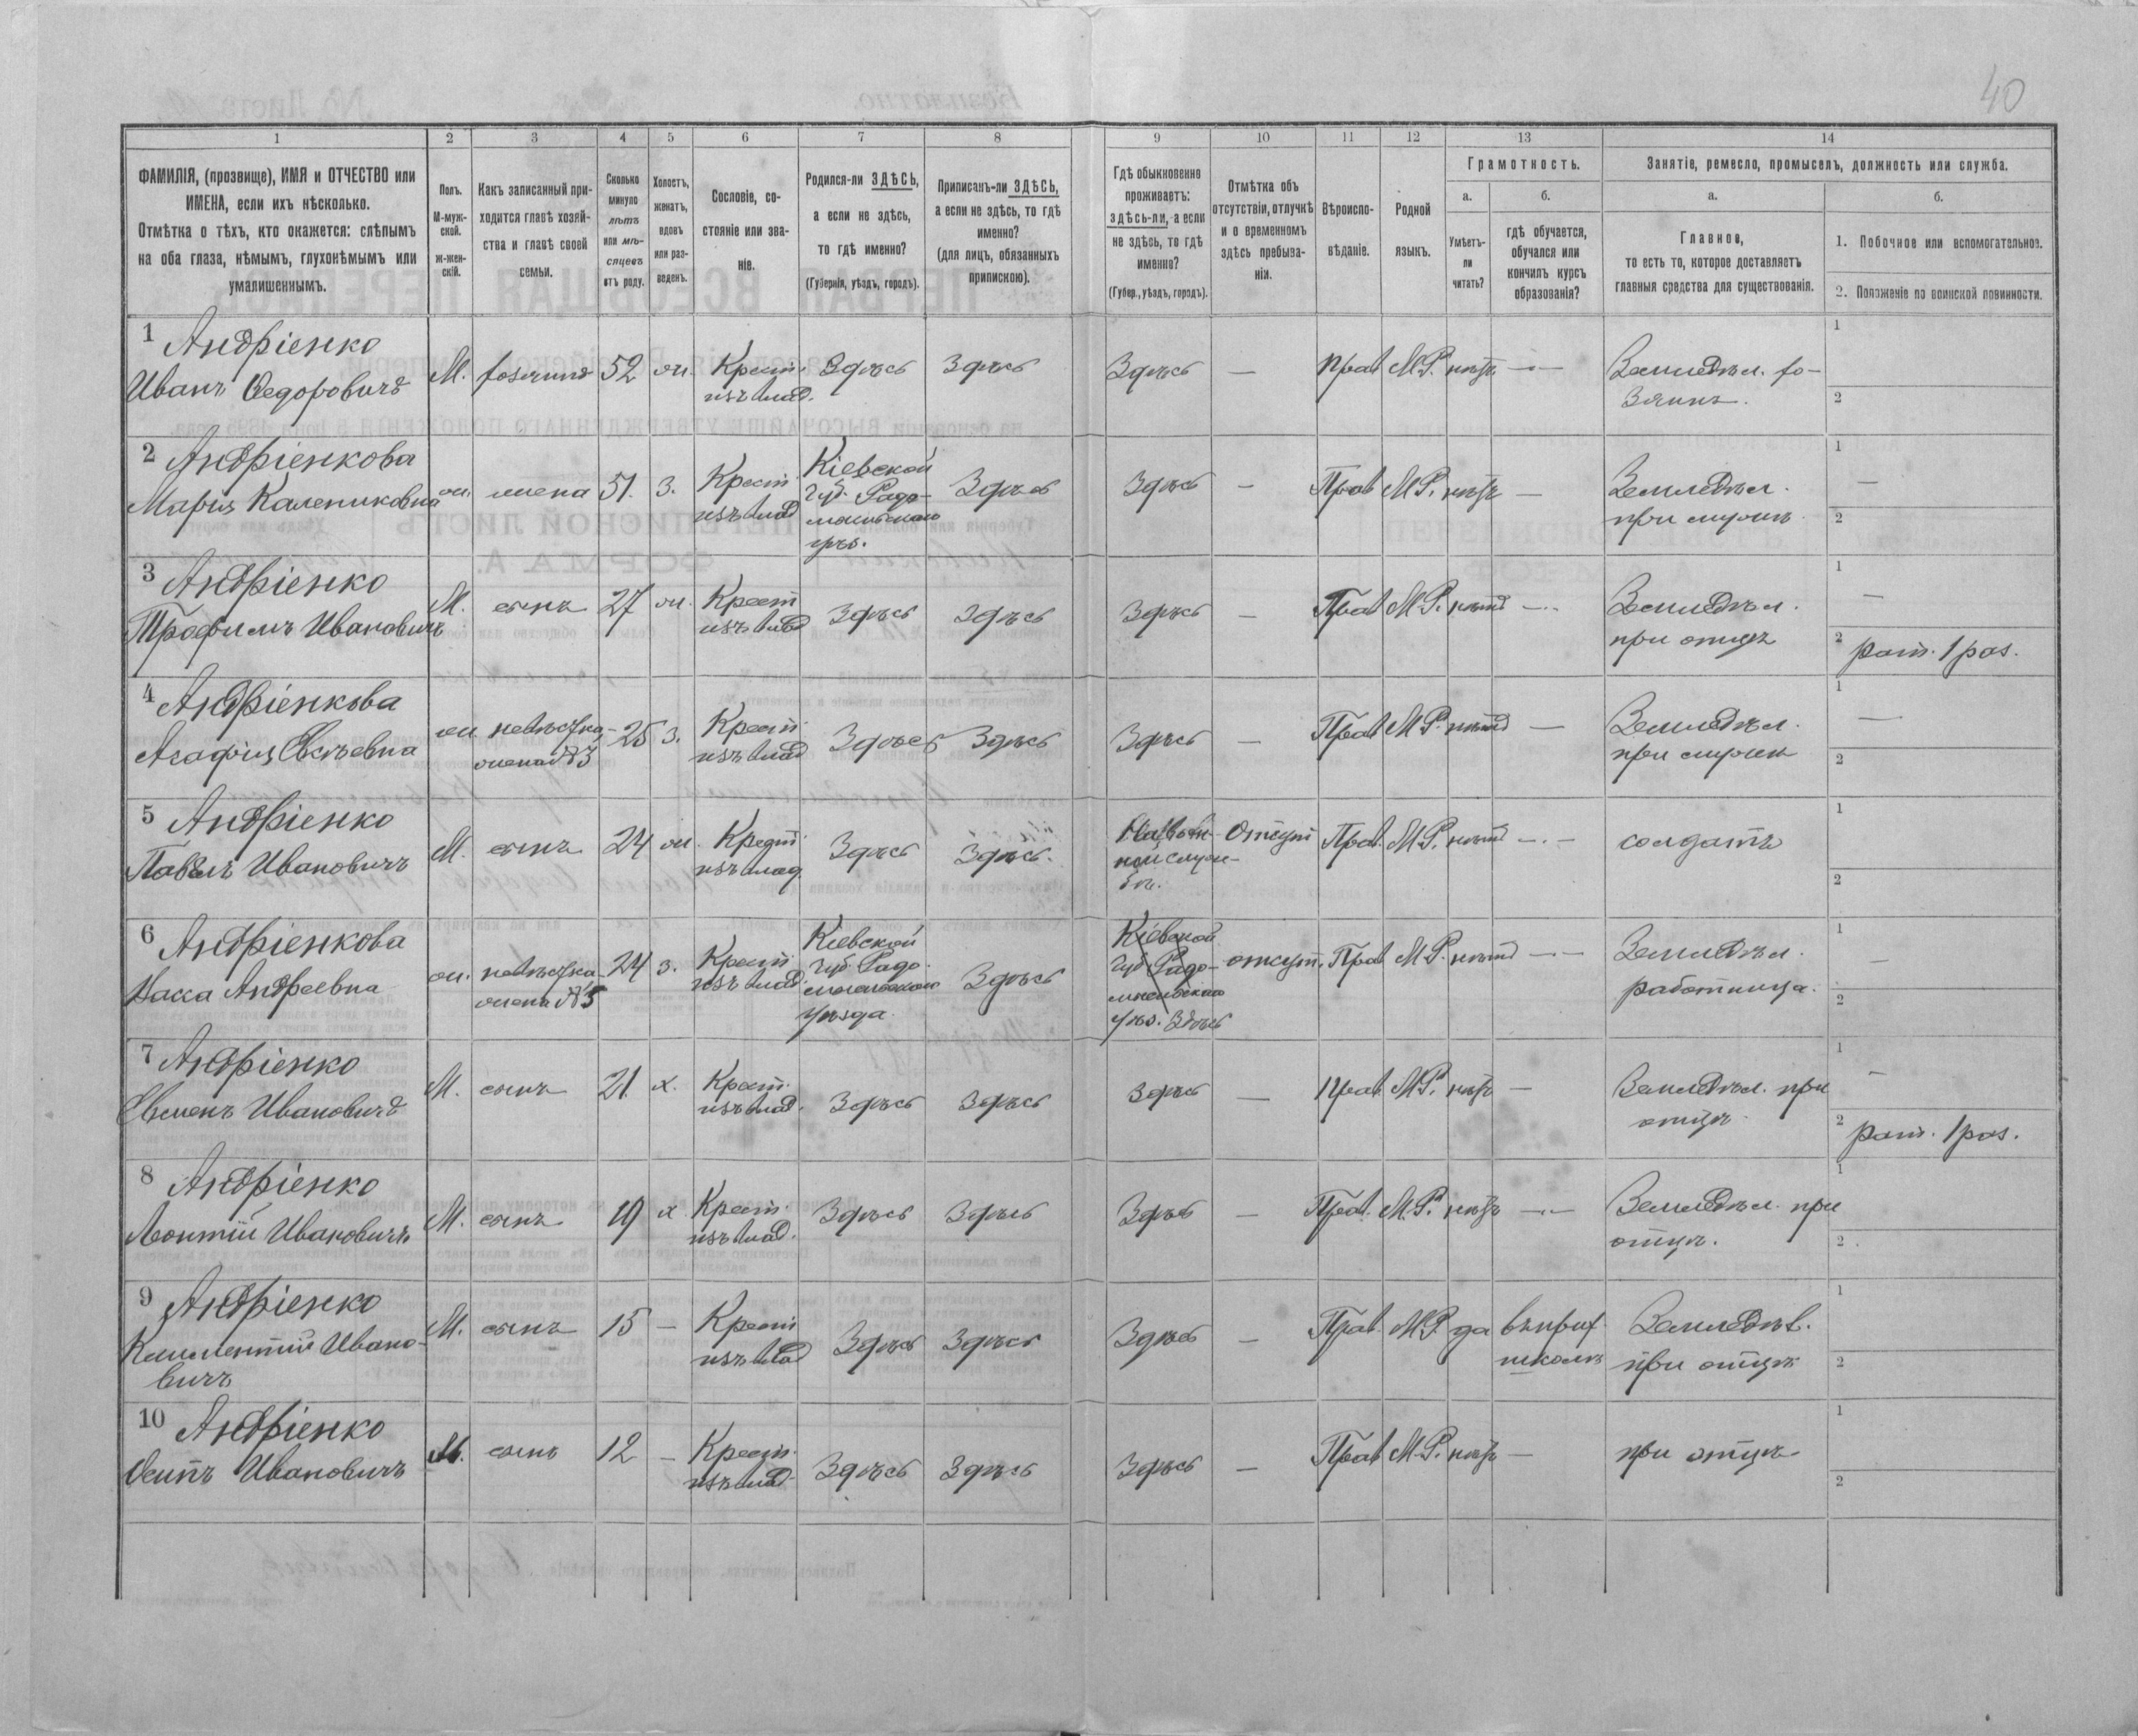 40
1 2 3 4 5 6 7 8 9 10 11 12 13 14
ФАМИЛІЯ, (прозвище), ИМЯ и ОТЧЕСТВО или
ИМЕНА, если ихъ нѣсколько.
Отмѣтка о тѣхъ, кто окажется: слѣпымъ
на оба глаза, нѣмымъ, глухонѣмымъ или
умалишеннымъ.
Полъ.
М-муж-
ской.
ж-жен-
скій.
Какъ записанный при-
ходится главѣ хозяй-
ства и главѣ своей
семьи.
Сколько
минуло
лѣтъ
или мѣ-
сяцевъ
отъ роду.
Холостъ,
женатъ,
вдовъ
или раз-
веденъ.
Сословіе, со-
стояніе или зва-
ніе.
Родился-ли ЗДѢСЬ,
а если не здѣсь,
то гдѣ именно?
(Губернія, уѣздъ, городъ).
Приписанъ-ли ЗДѢСЬ,
а если не здѣсь, то гдѣ
именно?
(для лицъ, обязанныхъ
припискою).
Гдѣ обыкновенно
проживаетъ:
здѣсь-ли, а если
не здѣсь, то гдѣ
именно?
(Губер., уѣздъ, городъ).
Отмѣтка объ
отсутствіи, отлучкѣ
и о временномъ
здѣсь пребыва-
ніи.
Вѣроиспо-
вѣданіе.
Родной
языкъ.
Грамотность.
а.
Умѣетъ-
ли
читать?
б.
гдѣ обучается,
обучался или
кончилъ курсъ
образованія?
Занятіе, ремесло, промыселъ, должность или служба.
а.
Главное,
то есть то, которое доставляетъ
главныя средства для существованія.
б.
1. Побочное или вспомогательное.
2. Положеніе по воинской повинности.
1 Андріенко
Иванъ Ѳедоровичъ
М. хозяинъ 52 ж. Крест.
изъ влад.
Здѣсь Здѣсь Здѣсь — Прав М.Р. нѣтъ —
Земледѣл. хо-
зяинъ.
1
2
2 Андріенкова
Марія Калениковна
ж. жена 51. З. Крест
изъ влад
Кіевской
губ. Радо-
мысльскаго
уѣз.
Здѣсь Здѣсь — Прав М.Р. нѣтъ —
Земледѣл.
при мужѣ
1 —
2
3 Андріенко
Трофимъ Ивановичъ
М. сынъ 27 ж. Крест
изъ влад
Здѣсь Здѣсь Здѣсь — Прав М.Р. нѣтъ —
Земледѣл.
при отцѣ
1 —
2 рат. 1 раз.
4 Андріенкова
Агафія Евсѣевна
ж невѣстка,
жена №3
25 З. Крест
изъ влад
Здѣсь Здѣсь Здѣсь — Прав М.Р. нѣтъ —
Земледѣл.
при мужѣ
1 —
2
5 Андріенко
Павелъ Ивановичъ
М. сынъ 24 ж. Крест
изъ влад.
Здѣсь Здѣсь.
На воен-
ной служ-
бѣ.
Отсут Прав. М.Р. нѣтъ —
солдатъ
1
2
6 Андріенкова
Андреевна
ж. невѣстка
жена №5
24 з. Крест
изъ влад.
Кіевской
губ. Радо
мысльскаго
уѣзда
Здѣсь
Кіевской
губ. Радо-
мысльскаго
уѣз. Здѣсь
отсут. Прав М.Р. нѣтъ —
Земледѣл.
работница.
1 —
2
7 Андріенко
Евменъ Ивановичъ
М. сынъ 21. х. Крест.
изъ влад.
Здѣсь Здѣсь Здѣсь — Прав М.Р. нѣтъ —
Земледѣл. при
отцѣ
1 —
2 рат. 1 раз.
8 Андріенко
Леонтій Ивановичъ
М. сынъ 19 х Крест.
изъ влад.
Здѣсь Здѣсь Здѣсь — Прав. М.Р. нѣтъ —
Земледѣл. при
отцѣ.
1
2
9 Андріенко
Климентій Ивано-
вичъ
М. сынъ 15 — Крест
изъ влад
Здѣсь Здѣсь Здѣсь — Прав М.Р. да
школѣ
Земледѣл.
при отцѣ
1
2
10 Андріенко
Осипъ Ивановичъ
М. сынъ 12 — Крест.
изъ влад
Здѣсь Здѣсь Здѣсь — Прав М.Р. нѣтъ —
при отцѣ
1
2